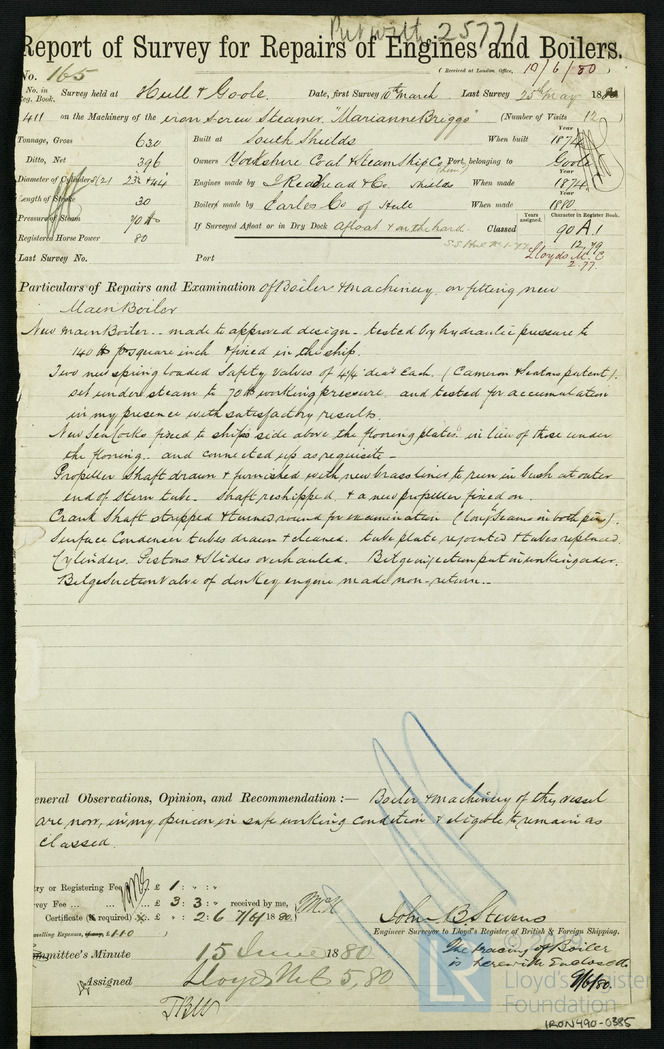 Put with 25771
Report of Survey for Repairs of Engines and Boilers.
No. 165 (Received at London Office, 10/6/80)
No. in Reg. Book. Survey held at Hull & Goole. Date, first Survey 10th March Last Survey 25th May 1880
411 on the Machinery of the iron Screw Steamer, "Marianne Briggs" (Number of Visits 12)
Tonnage, Gross 630 Built at South Shields When built Year 1874
Ditto, Net 396 Owners Yorkshire Coal & Steam Ship Co Port belonging to Goole
Diameter of Cylinders (2) 23½ & 44 Engines made by J Readhead & Co. Shields When made Year 1874
Length of Stroke 30 Boilers made by Earles Co of Hull When made Year 1880
Pressure of Steam 70 lb If Surveyed Afloat or in Dry Dock Afloat & on the hard. Classed Years assigned. Character in Register Book. 90 A.1
Registered Horse Power 80 12.79
Last Survey No. Port Lloyds M.C 2.77.
Particulars of Repairs and Examination of Boiler & machinery, on fitting new
Main Boiler
New main Boiler.. made to approved design - tested by hydraulic pressure to
140 lb pr square inch & fixed in the ship.
Two new spring loaded Safety Valves of 4¼" diar each. (Cameron & Seatons patent).
set under steam to 70 lb working pressure and tested for accumulation
in my presence with satisfactory results.
New Sea Cocks fixed to ship's side above the flooring plates in lieu of those under
the flooring.. and connected up as requisite -
Propeller Shaft drawn & furnished with new brass liner to run in bush at outer
end of stern tube. Shaft reshipped & a new propeller fixed on.
Crank Shaft stripped & turned round for examination (long seams in both pins).
Surface Condenser tubes drawn & cleaned. tube plate rejointed & tubes replaced.
Cylinders. Pistons & Slides overhauled. Bilge injection put in working order.
Bilge Suction Valve of donkey engine made non-return..
General Observations, Opinion, and Recommendation :— Boiler & machinery of this vessel
are now, in my opinion in safe working condition & eligible to remain as
classed.
Entry or Registering Fee £ 1 : " : "
Survey Fee ... £ 3 : 3 : " received by me,
Certificate (if required) £ " : 2 : 6 7/6/1880.)
Travelling Expenses, if any, £ 1.1.0
John B. Stevens
Engineer Surveyor to Lloyd's Register of British & Foreign Shipping.
Committee's Minute 15 June 1880
Assigned Lloyds M C 5,80
The tracing of Boiler
is herewith enclosed.
9/6/80.
Lloyd's Register
Foundation
IRON490-0385